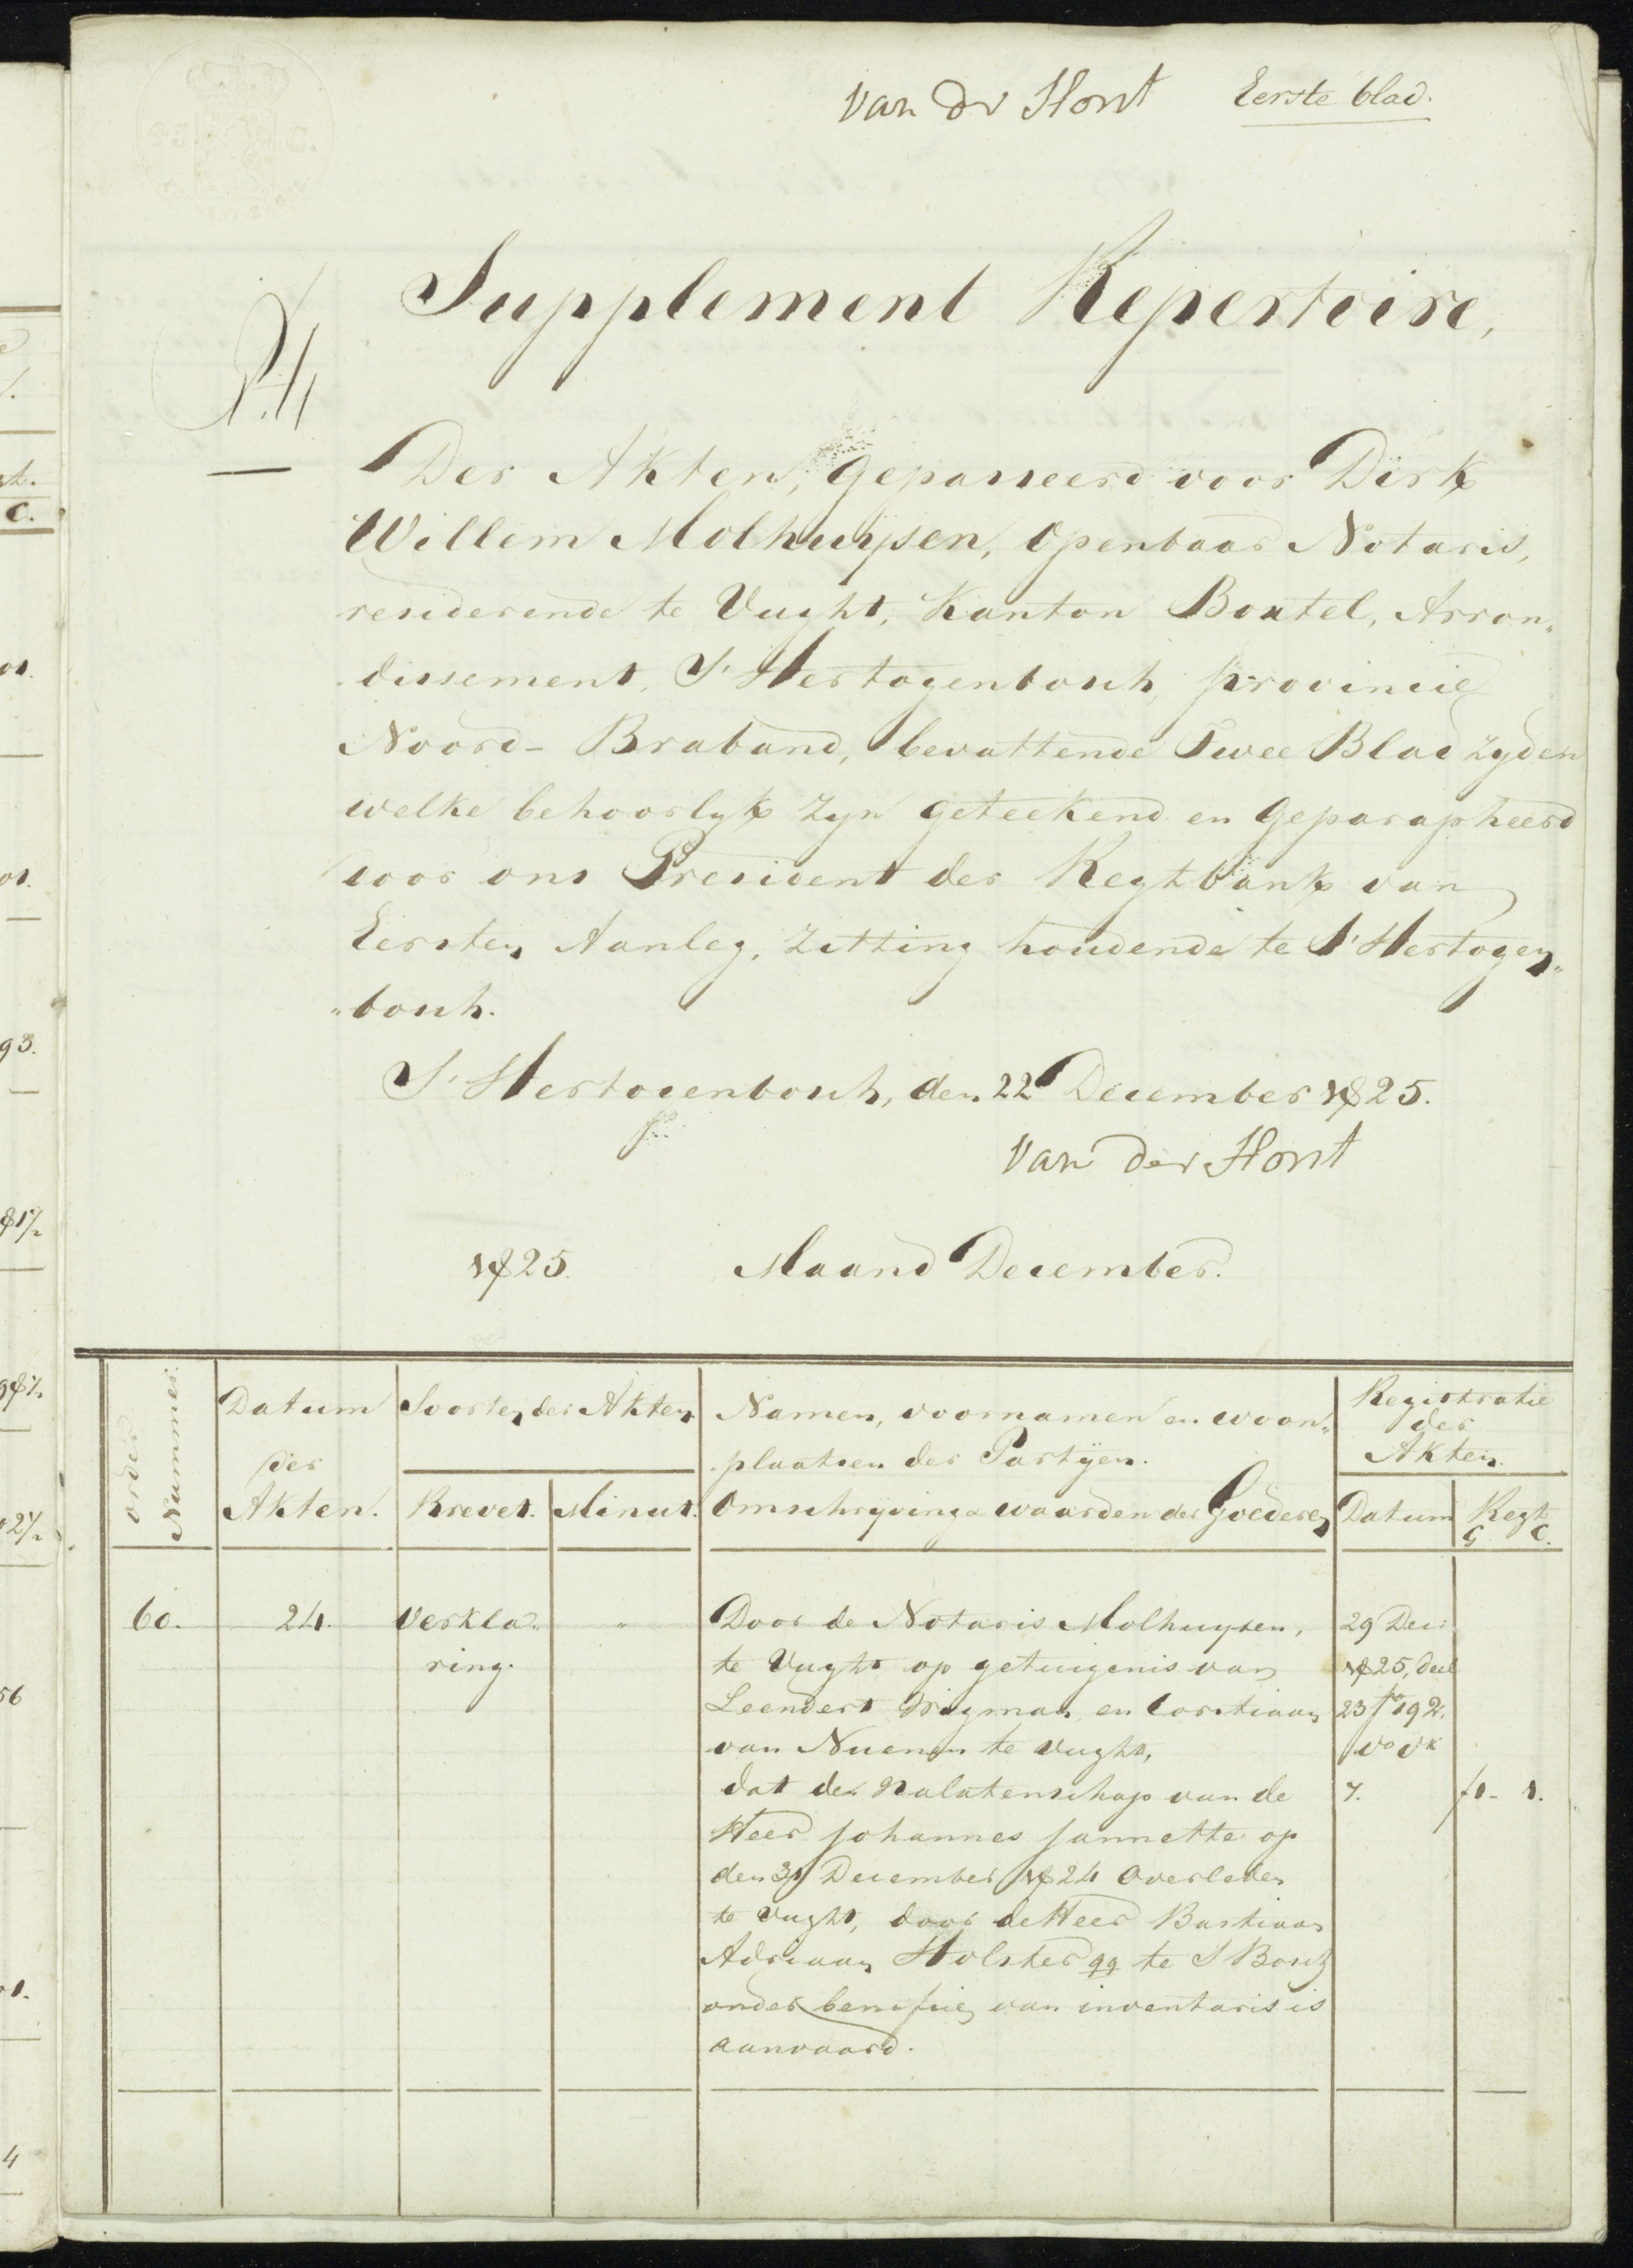 van der Horst Eerste blad.
Supplement Repertoire,
Der Akten, gepasseerd voor Dirk
Willem Molhuijsen, Openbaar Notaris,
resideerende te Vught, Kanton Boxtel, Arron„
dissement, S'Hertogenbosch, provincie
Noord-Braband, bevattende Twee Bladzyden
welke behoorlyk zyn geteekend en geparapheerd
voor ons President der Regtbank van
Eersten Aanleg, zitting houdende te S'Hertogen„
„bosch.
S'Hertogenbosch, den 22 December 1825.
Van der Horst
1825. Maand December.
Order Nummer.
Datum der Akten.
Soorten der Akten
Brevet. Minut.
Namen, voornamen en woon„
plaatsen der Partijen.
Omschryving & waarden der Goederen
Registratie
der
Akten.
Datum Regt
G. C.
60. 24. Verkla„ „ Door de Notaris Molhuysen, 29 Dec:
ring. te Vught op getuigenis van 1825, deel
Leendert en Corstiaan 23 fo 192.
van Nuenen te Vught, vo vk
dat de nalatenschap van de 7. f1- 1.
Heer Johannes Jannette op
den 31 December 1824 overleden
te Vught, door de Heer Bastiaan
Adriaan Holster qq te S Bosch
onder benefice van inventaris is
aanvaard.